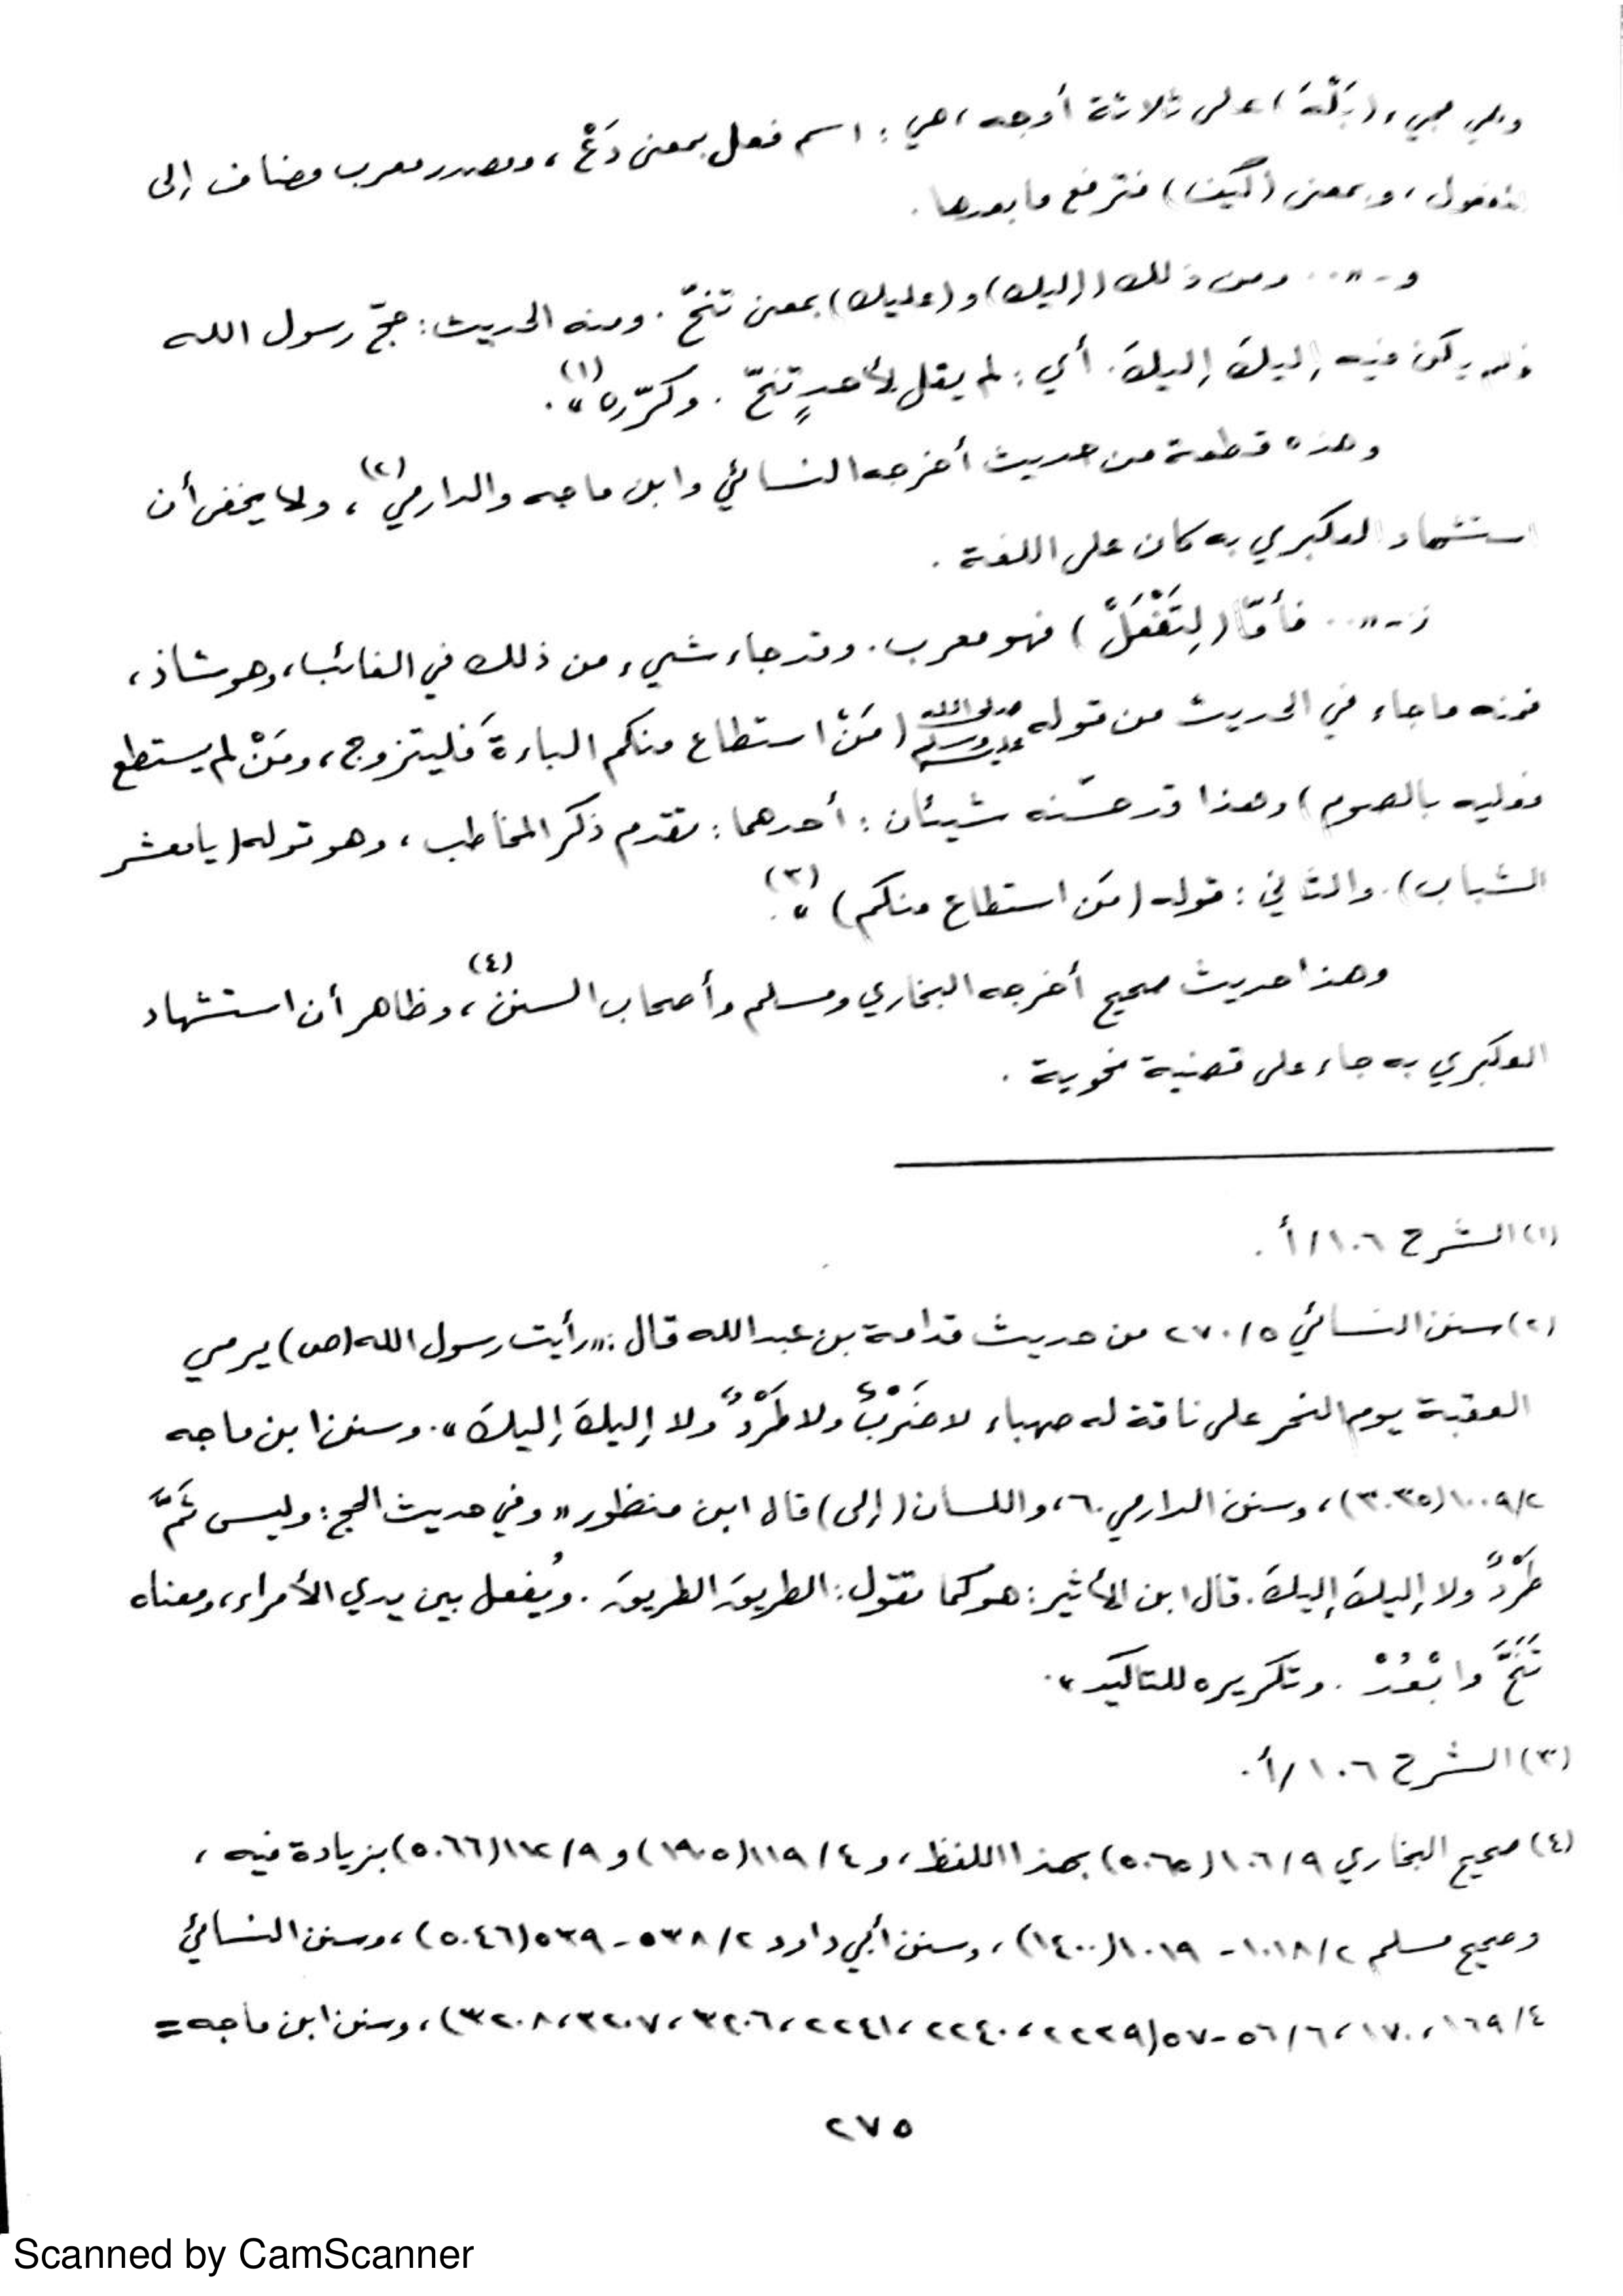 وهي مجيء (بَلْهَ) على ثلاثة أوجه، هي: اسم فعل بمعنى دَعْ، ومصدر معرب مضاف إلى
المفعول، وبمعنى (كيف) فترفع ما بعدها.
و- "... ومن ذلك (إليك) و(عليك) بمعنى تنحَّ. ومنه الحديث: حجّ رسول الله
فلم يكن فيه إليكَ إليكَ. أي: لم يقل لأحدٍ تنحّ. وكرّره"(١).
وهذه قطعة من حديث أخرجه النسائي وابن ماجه والدارمي(٢)، ولا يخفى أن
استشهاد العكبري به كان على اللغة.
ز- "... فأمّا (لِتَفْعَلْ) فهو معرب. وقد جاء شيء من ذلك في الغائب، وهو شاذ،
فمنه ما جاء في الحديث من قوله صلى الله عليه وسلم (مَنْ استطاع منكم الباءةَ فليتزوج، ومَنْ لم يستطع
فعليه بالصوم) وهذا قد حسّنه شيئان: أحدهما: تقدم ذكر المخاطب، وهو قوله (يا معشر
الشباب). والثاني: قوله (مَن استطاع منكم)"(٣).
وهذا حديث صحيح أخرجه البخاري ومسلم وأصحاب السنن(٤)، وظاهر أن استشهاد
العكبري به جاء على قضية نحوية.
(١) الشرح ١٠٦/أ.
(٢) سنن النسائي ٥/٢٧٠ من حديث قدامة بن عبد الله قال: "رأيت رسول الله (ص) يرمي
العقبة يوم النحر على ناقة له صهباء لا ضَرْبٌ ولا طَرْدٌ ولا إليكَ إليكَ". وسنن ابن ماجه
٢/١٠٠٩(٣٠٣٥)، وسنن الدارمي ٦٠، واللسان (إلى) قال ابن منظور "وفي حديث الحج: وليس ثَمَّ
طَرْدٌ ولا إليكَ إليكَ. قال ابن الأثير: هو كما تقول: الطريقَ الطريقَ. ويُفعل بين يدي الأمراء، ومعناه
تَنَحَّ وابْعُدْ. وتكريره للتاكيد".
(٣) الشرح ١٠٦/أ.
(٤) صحيح البخاري ٩/١٠٦(٥٠٦٥) بهذا اللفظ، و ٤/١١٩(١٩٠٥) و ٩/١١٢(٥٠٦٦) بزيادة فيه،
وصحيح مسلم ٢/١٠١٨-١٠١٩(١٤٠٠)، وسنن أبي داود ٢/٥٣٨-٥٣٩(٥٠٤٦)، وسنن النسائي
٤/١٦٩، ١٧٠، ٦/٥٦-٥٧(٢٢٣٩، ٢٢٤٠، ٢٢٤١، ٣٢٠٦، ٣٢٠٧، ٣٢٠٨)، وسنن ابن ماجه =
٢٧٥
Scanned by CamScanner